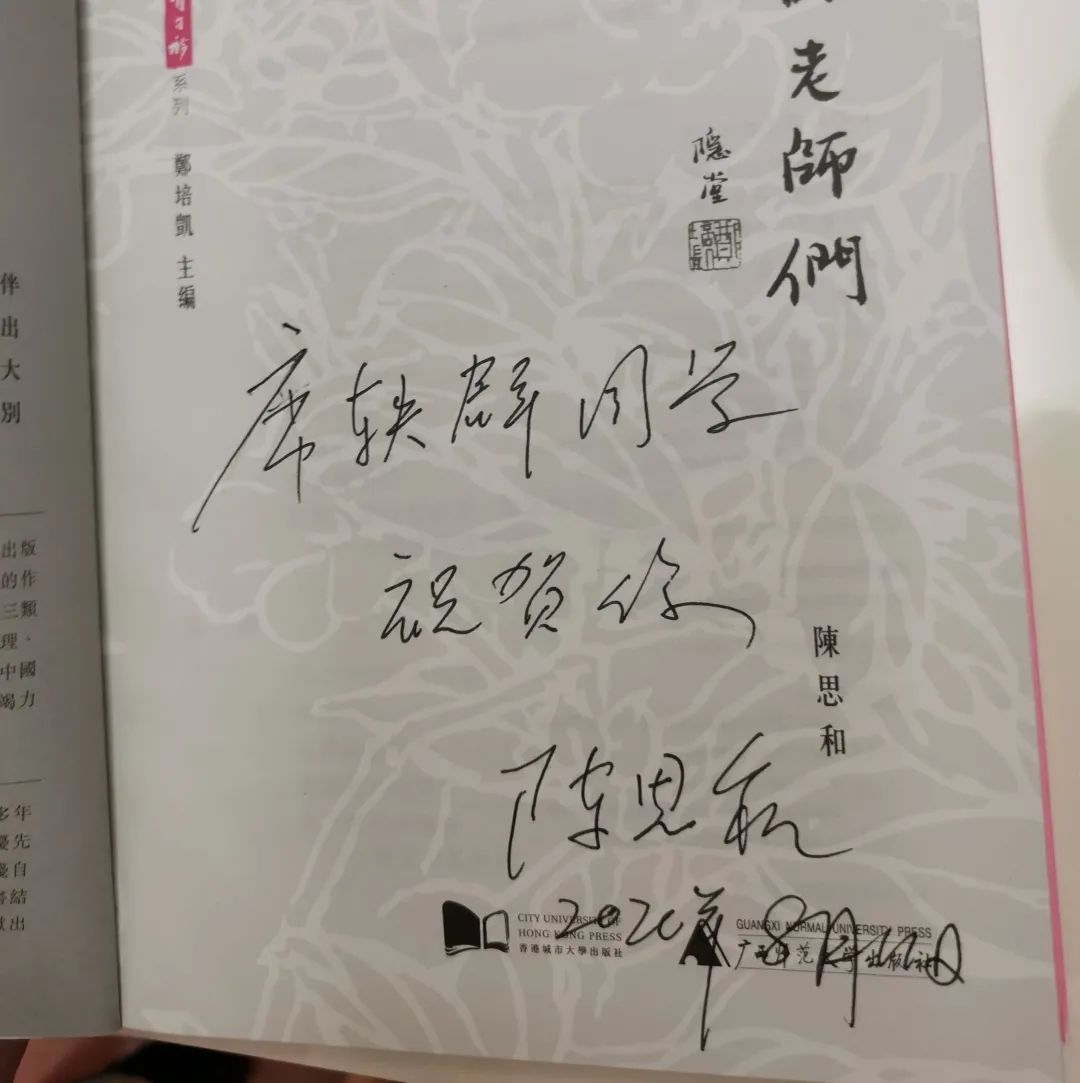 老師們
隐堂
子衿 系列 鄭培凱 主編
伴
出
大
別
出版
的作
三類
理、
中國
竭力
多年
優先
自
結
出
席轶群同学
祝贺你
陳思和
陈思和
2020年8月
CITY UNIVERSITY OF
HONG KONG PRESS
香港城市大學出版社
GUANGXI NORMAL UNIVERSITY PRESS
广西师范大学出版社